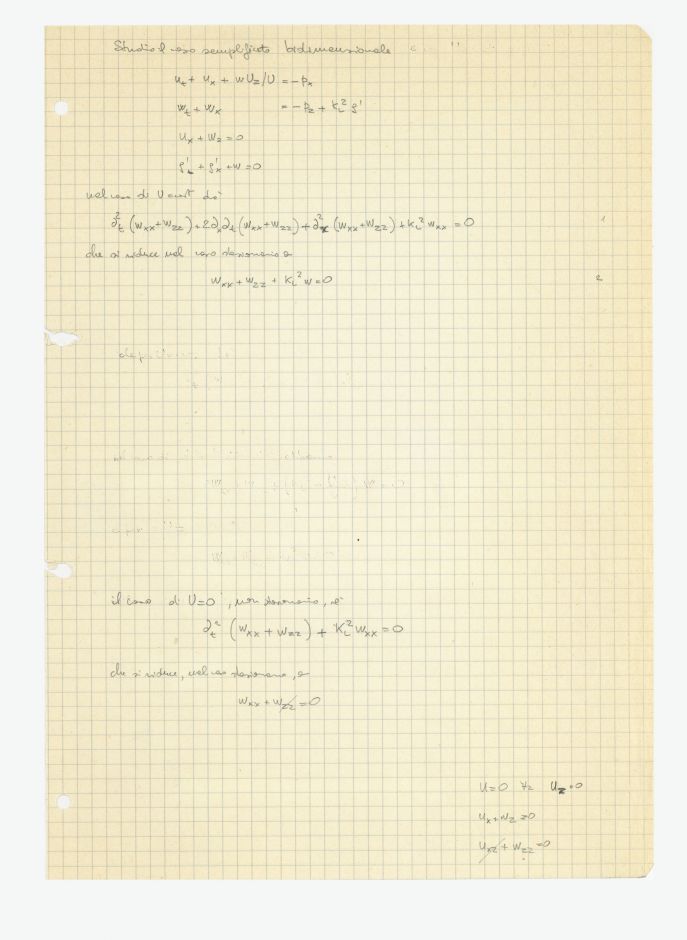 Studio il caso semplificato bidimensionale
u_t + u_x + w U_z/U = -p_x
w_t + w_x = -p_z + k_L^2 ρ'
u_x + w_z = 0
ρ'_t + ρ'_x + w = 0
nel caso di U cost dà
∂_t^2 (w_xx + w_zz) + 2∂_x∂_t (w_xx + w_zz) + ∂_x^2 (w_xx + w_zz) + k_L^2 w_xx = 0 1
che si riduce nel caso stazionario a
w_xx + w_zz + k_L^2 w = 0 2
il caso di U=0, non stazionario, è
∂_t^2 (w_xx + w_zz) + k_L^2 w_xx = 0
che si riduce, nel caso stazionario, a
w_xx + w_zz = 0
U=0 ∀z U_z=0
u_x + w_z = 0
u_xz + w_zz = 0